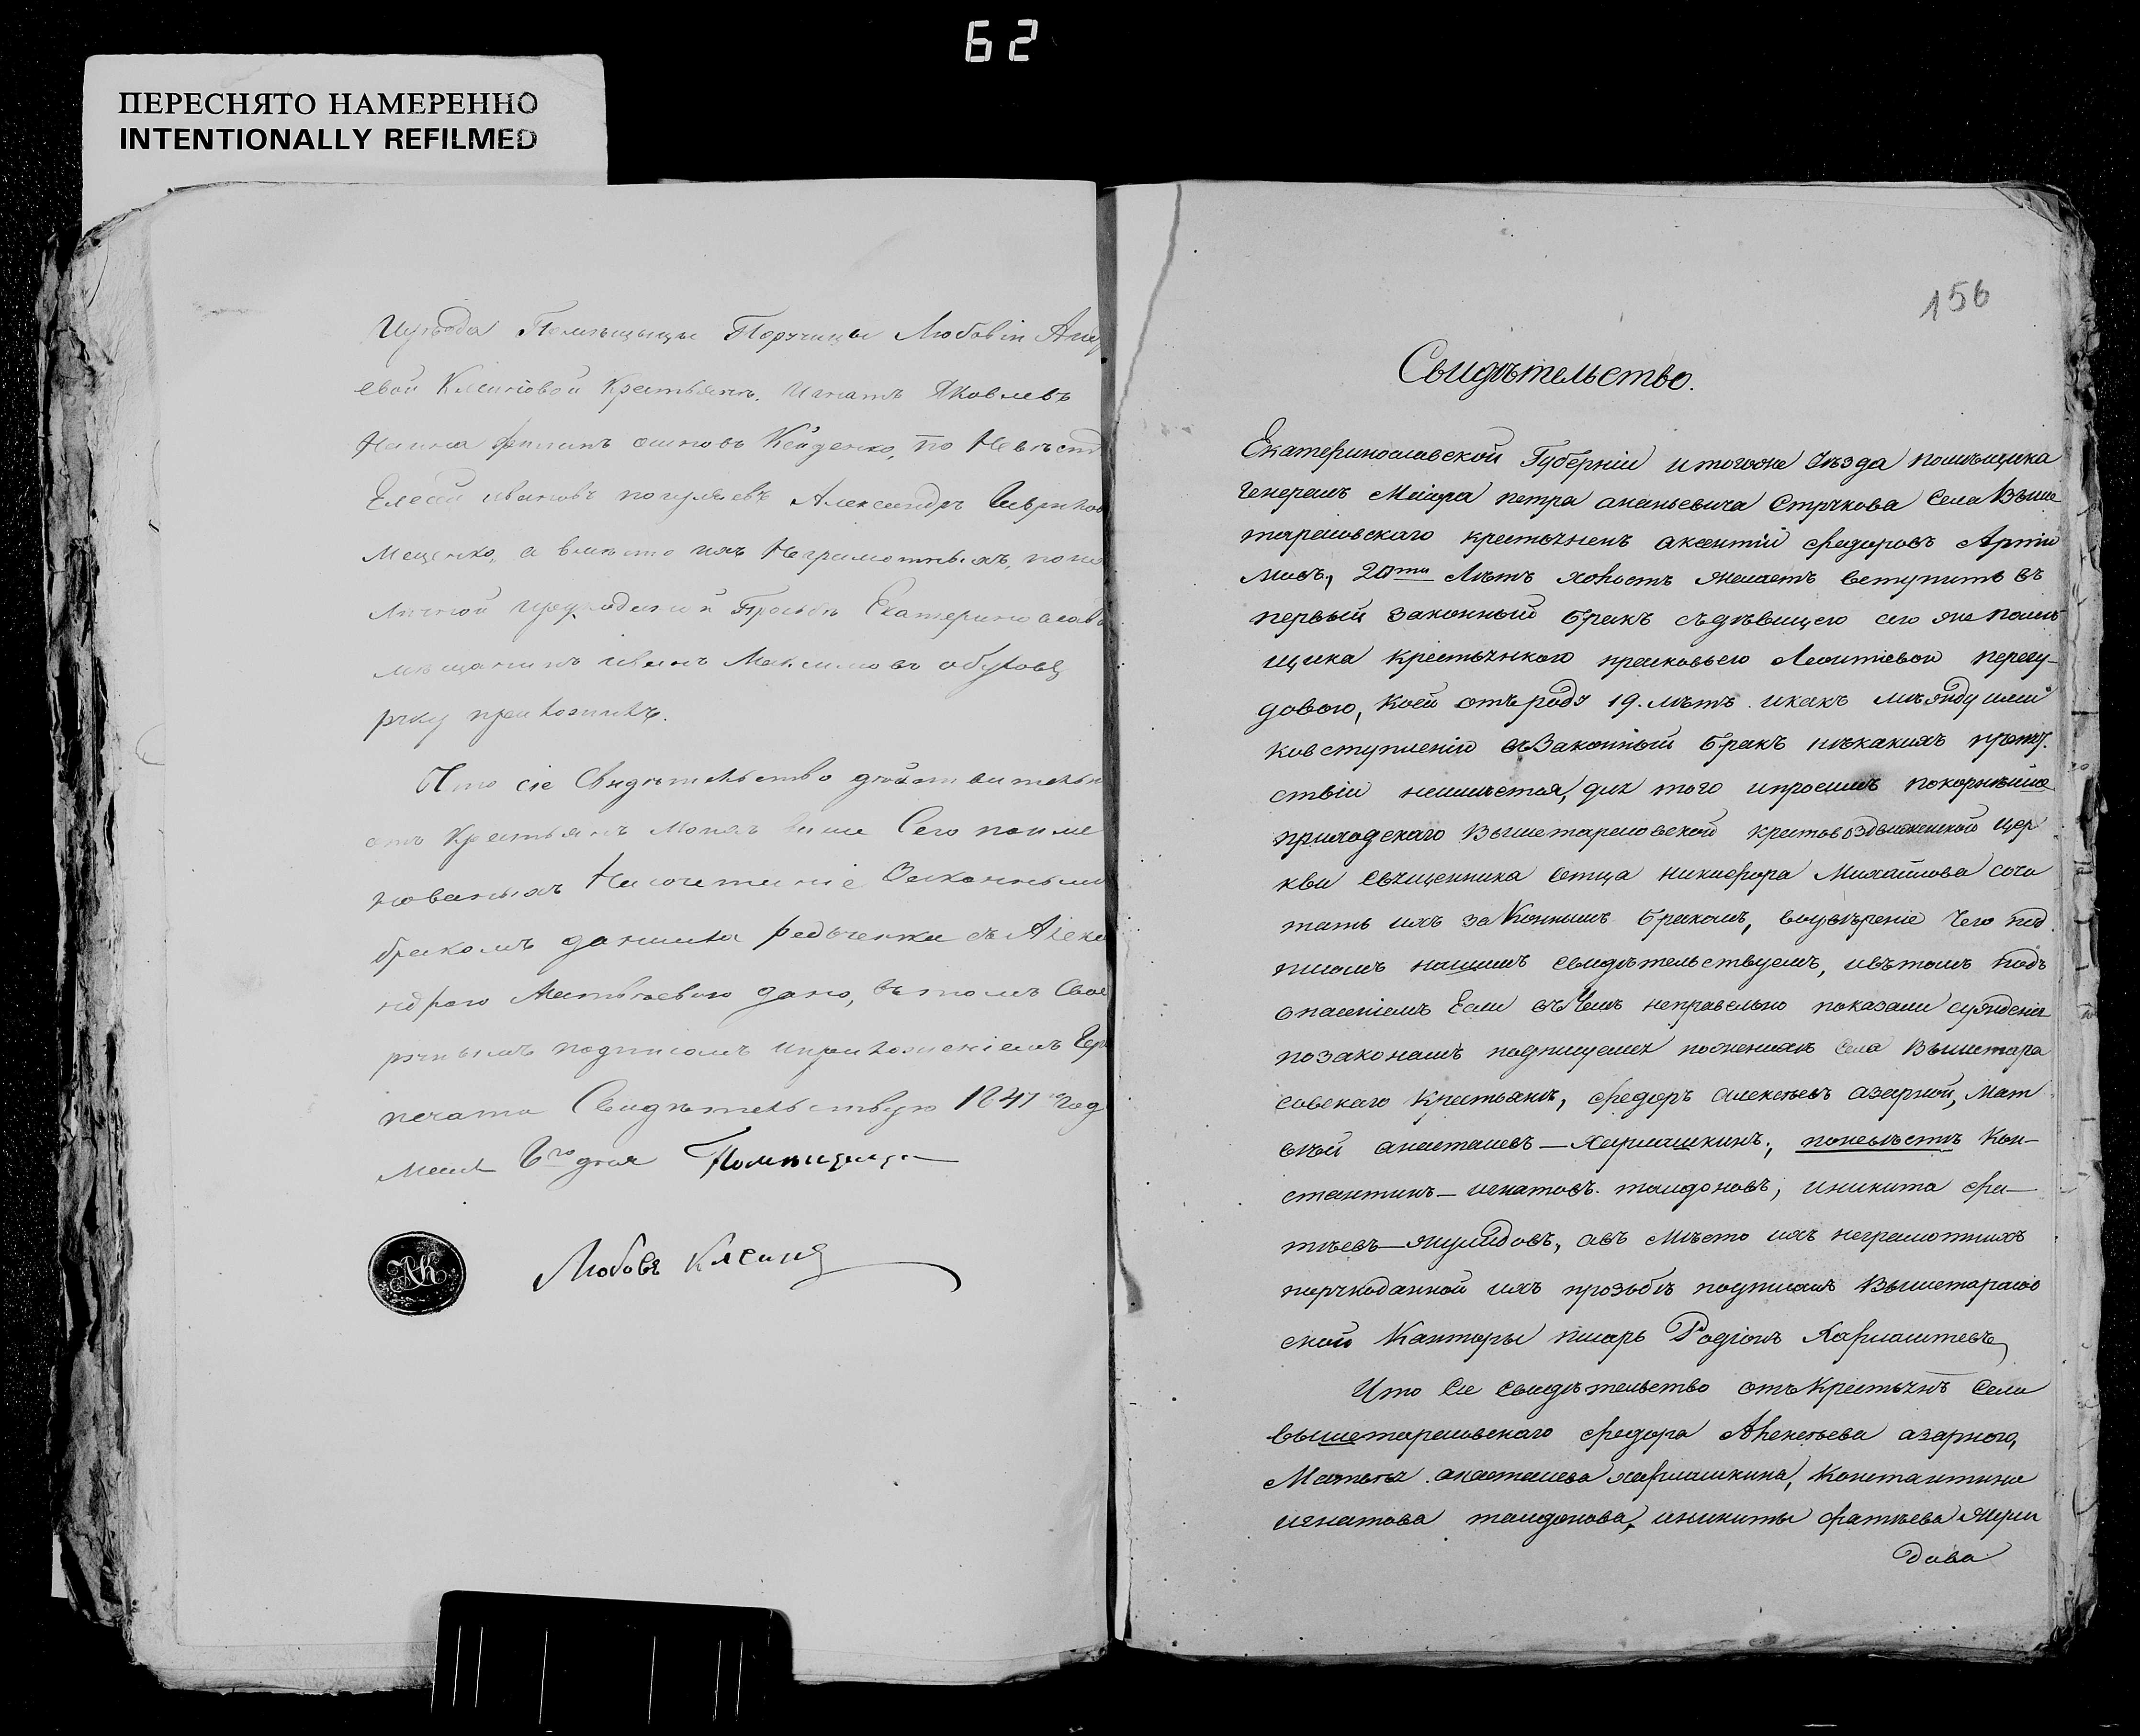 62
ПЕРЕСНЯТО НАМЕРЕННО
INTENTIONALLY REFILMED
Помѣщицы Любовіи
евой Клеиновой Игнатъ Яковлевъ
Кейденко, по
Елесей Ивановъ Александръ
Мещенко, а вмѣсто ихъ Неграмотныхъ, по
личной Прозьбѣ Екатеринослав
мѣщанинъ иванъ Максимовъ обуховъ
руку приложилъ.
Что сіе Свидѣтельство дѣйствительн
отъ Крестьянъ Моихъ выше Сего поиме
нованыхъ На сочетаніе Законнымъ
бракомъ данила редченка съ Алекса
ндрою Матвѣевою дано, въ томъ Свое
ручнымъ подписомъ и приложеніемъ Герб
печати Свидѣтельствую 1841 Года
Мая 6го дня Помѣщица
Любовь Клеина
АК
156
Свидѣтельство.
Екатеринославской Губерніи и того же Уѣзда помѣщика
Генералъ Маіора петра ананьевича Струкова Села Выше
тарасовскаго крестьянинъ аксентій федоровъ Артю
ховъ, 20ти Лѣтъ холостъ желаетъ вступить въ
первый законный бракъ съ дѣвицею его же помѣ
щика крестьянкою прасковьею Леонтіевою перегу-
довою, коей отъ роду 19. лѣтъ и какъ между ими
ко вступленію въ Законный бракъ никакихъ препят
ствій неимѣется, для того и просимъ покорнѣйше
приходскаго Вышетарасовской крестовоздвиженской цер
кви Священника Отца никифора Михайлова соче
тать ихъ законнымъ бракомъ, во увѣреніе чего под
писомъ нашимъ свидѣтельствуемъ, и въ томъ подъ
опасеніемъ Если въ чемъ неправельно показали сужденія
по законамъ подписуемся поженихѣ Села Вышетара
совскаго Крестьяне, федоръ алексѣевъ азарной, Мат
вѣй анастасіевъ — Хармашкинъ, поневѣстѣ Кон-
стантинъ — игнатовъ таидоновъ, и никита фа-
тѣевъ — а въ Мѣсто ихъ неграмотныхъ
по рукоданной ихъ прозьбѣ подписалъ Вышетарасов
ской Канторы писарь Родіонъ
Что Сіе свидѣтельство отъ Крестьянъ Села
вышетарасовскаго федора Алексѣева азарнаго,
Матвѣя анастасіева хармашкина, Константина
игнатова таидонова, и никиты фатѣева
дова